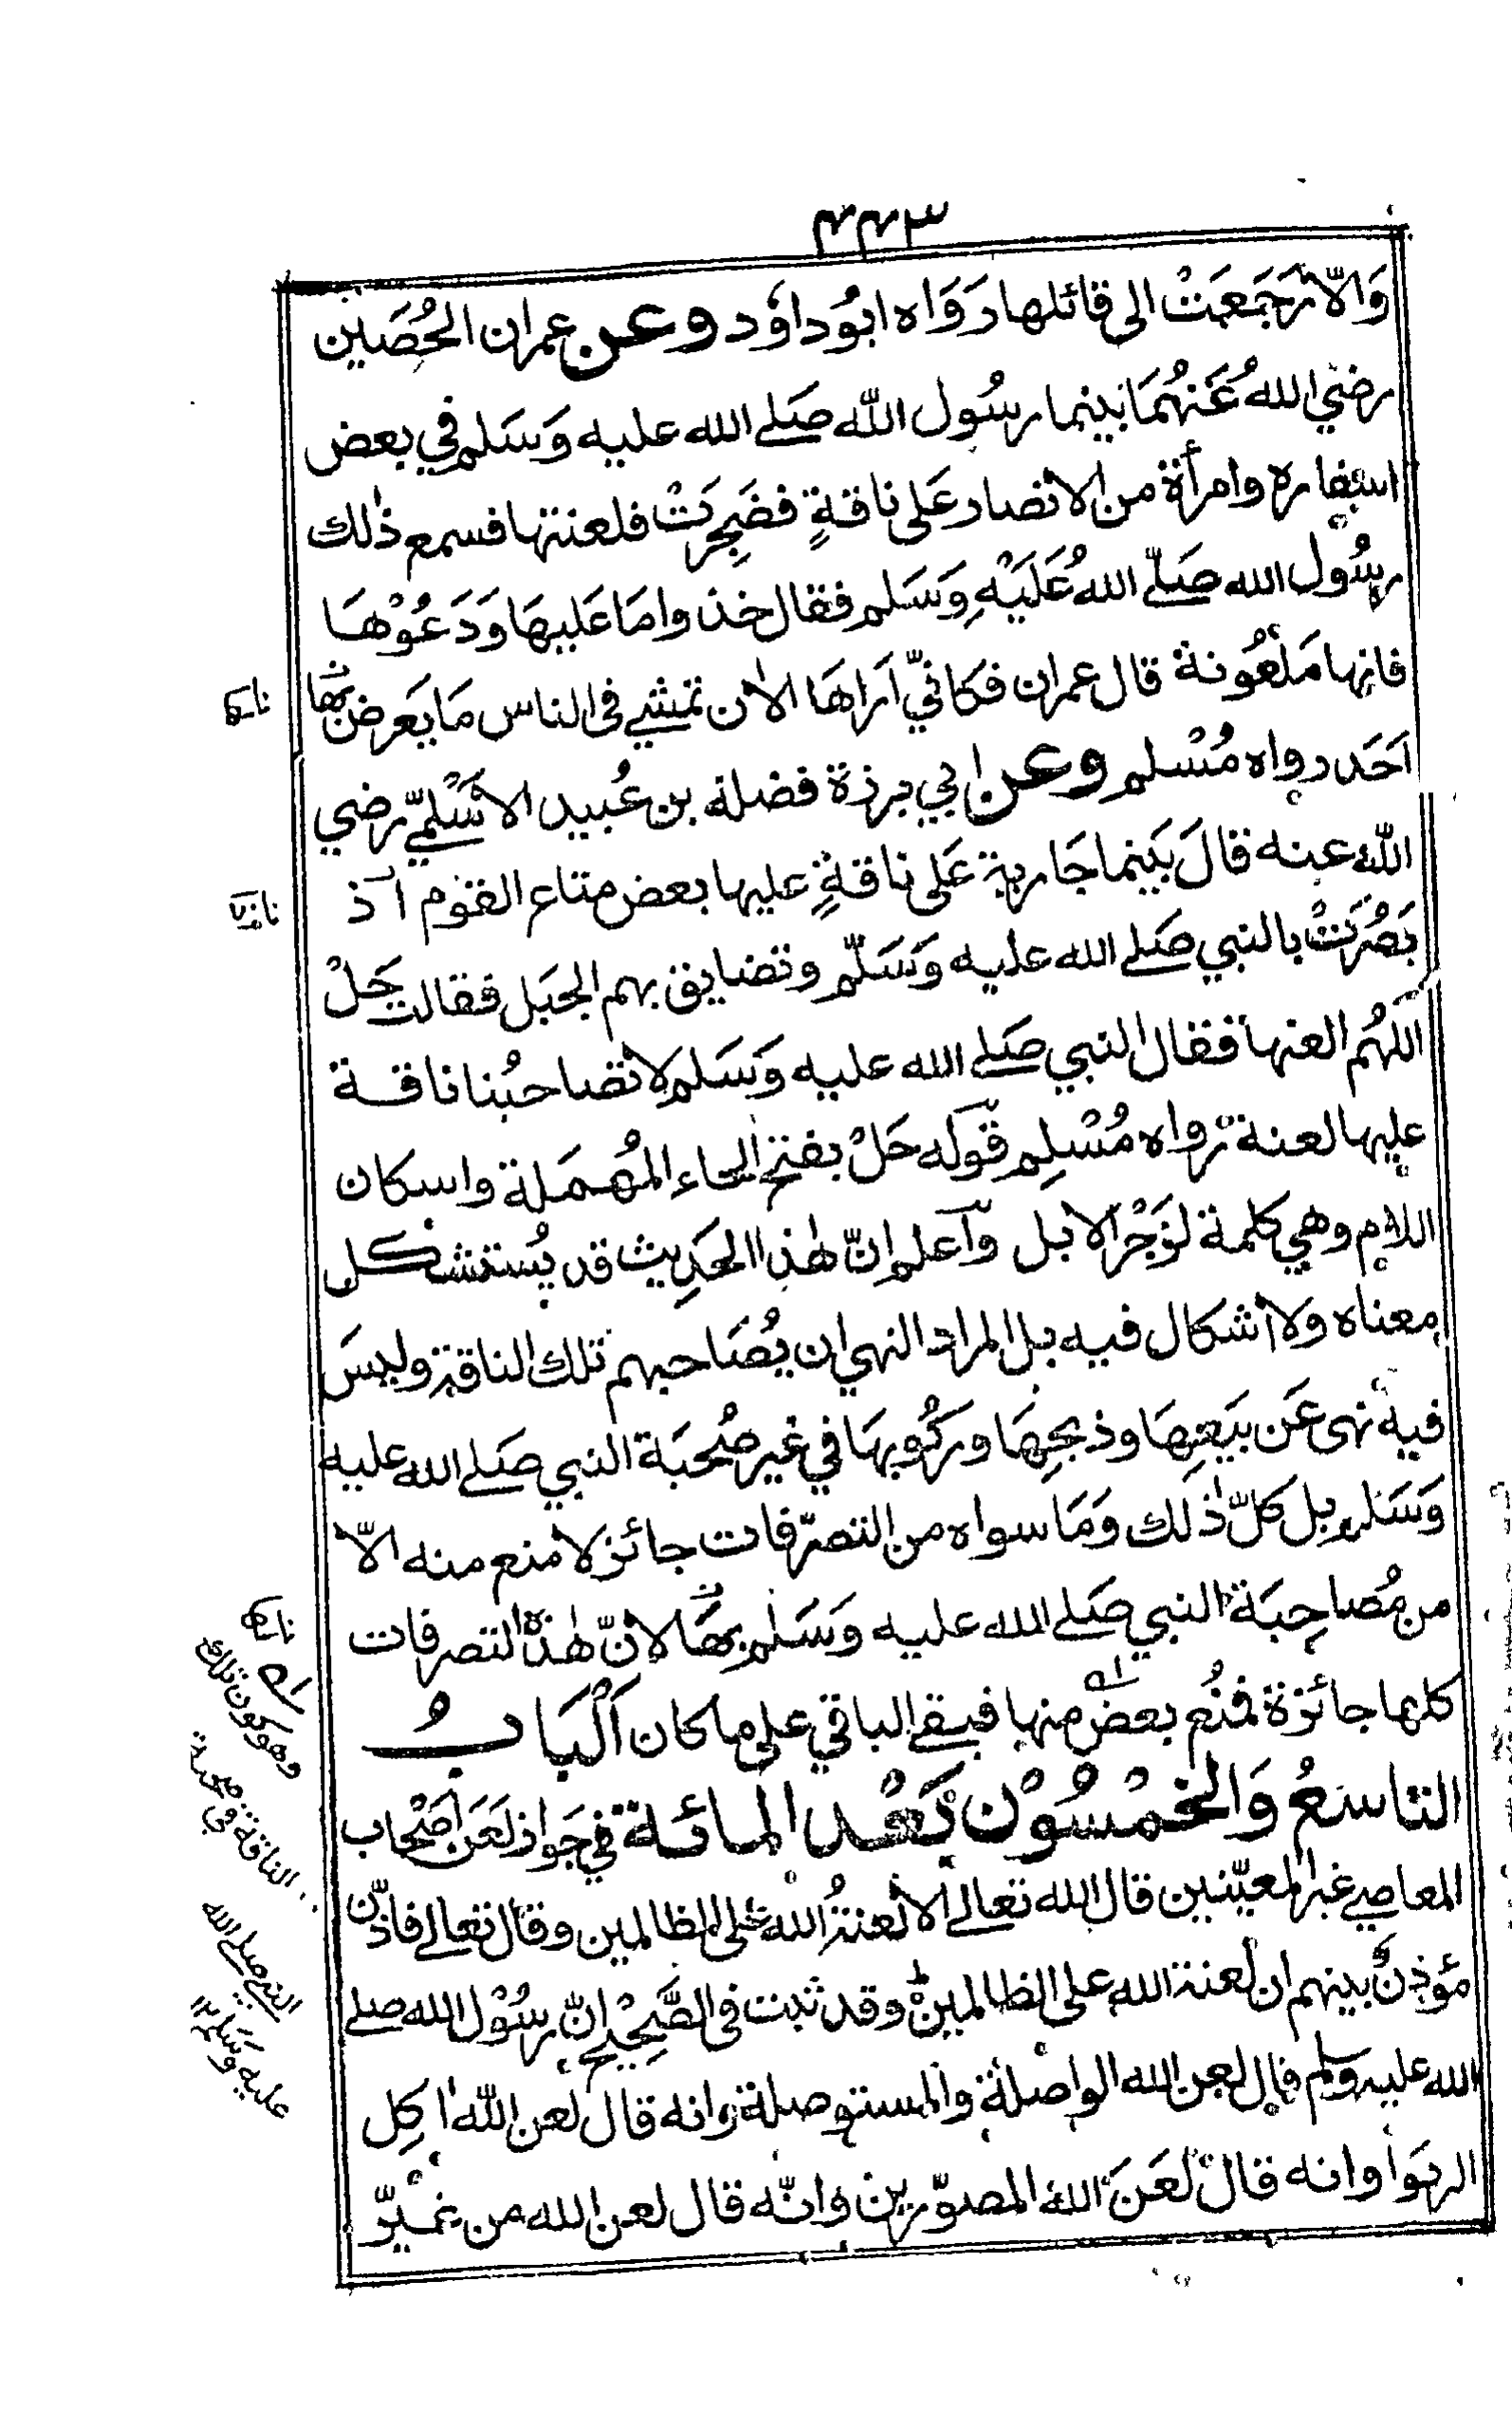 ٤٤٣
وَالّا رَجَعَتْ الى قائلها رَوَاه ابُو داوٗد وعن عمران الحُصَين
رضي اللهُ عَنهُمَا بينما رسُول اللّٰه صَلے الله عليه وَسَلم في بعض
اسفاره وامرأة من الانصار عَلى ناقةٍ فضَجِرَتْ فلعنتها فسمع ذٰلك
رسُول الله صَلّے اللهُ عَلَيْهِ وَسَلم فقال خذوا مَا عَليهَا وَدَعُوْهَا
فانها مَلْعُونة قال عمران فكانيّ اَرَاهَا الاٰن تمشي في الناس مَا يَعرض بها
اَحَد رواه مُسْلم وعن ابي برزة فضلة بن عُبيد الاَسْلَميّ رضي
اللّٰه عنه قالَ بَينما جَارية عَلى ناقةٍ عليها بعض متاع القوم اذ
بَصُرَتْ بالنبي صَلے الله عليه وَسَلّم وتضايق بهم الجبَل فقالت حَلْ
اَللّهُم العنها فقال النبي صَلے الله عليه وَسَلم لا تصاحبُنا ناقة
عليها لعنة رواه مُسْلِم قوله حَلْ بفتح الحاء المُهمَلة واسكان
اللام وهي كلمة لزَجْر الابل واعلم انّ هٰذا الحَدِيث قد يُستشكل
معناه ولا اشكال فيه بل المراد النهي ان يُصَاحبهم تلك الناقة وليسَ
فيه نهى عَن بيَعِهَا وذبحِهَا وركُوبهَا في غير صُحبَة النبي صَلے الله عليه
وَسَلم بل كلّ ذٰلك وَمَا سواه من التصرّفات جائز لا منع منه الّا
من مُصاحِبَة النبي صَلے الله عليه وَسَلم بهَا لانّ هٰذهٖ التصرفات
كلها جائزة فمُنع بعض منها فبقے الباقي على ما كان اَلْبَابُ
التاسعُ وَالخمْسُوْن بَعْد المائة في جَواز لعَن اَصْحاب
المعاصي غير المعيّنين قال الله تعالے الا لعنةُ الله على الظالمين وقال تعالے فاذّن
مؤذِنٌ بينهم ان لعنة الله على الظالمين وقد ثبت في الصَّحِيْح انّ رسُوْل الله صلے
الله عليه وسلم قال لعن الله الواصلة والمستوصلة وانه قال لعن اللّٰه اٰكِل
الربَوا وانه قال لعَنَ اللّٰه المصوّرين وانّه قال لعن الله من غيّر
وهو كون تلك
الناقة في صحبة
النبي صلے الله
عليه وسَلم ١٢